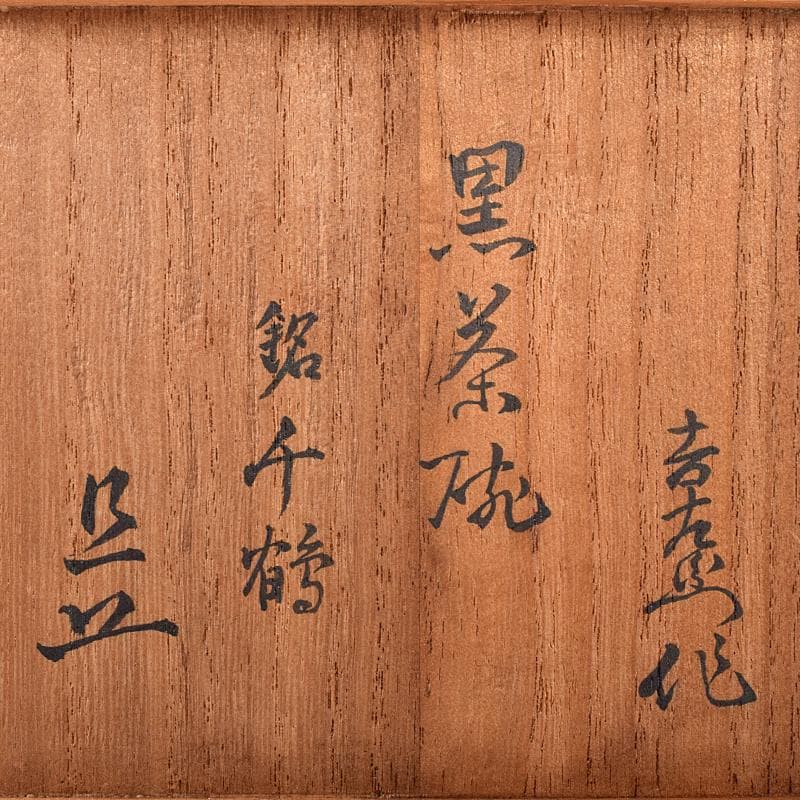 吉左衛門作
黒茶碗
銘 千鶴